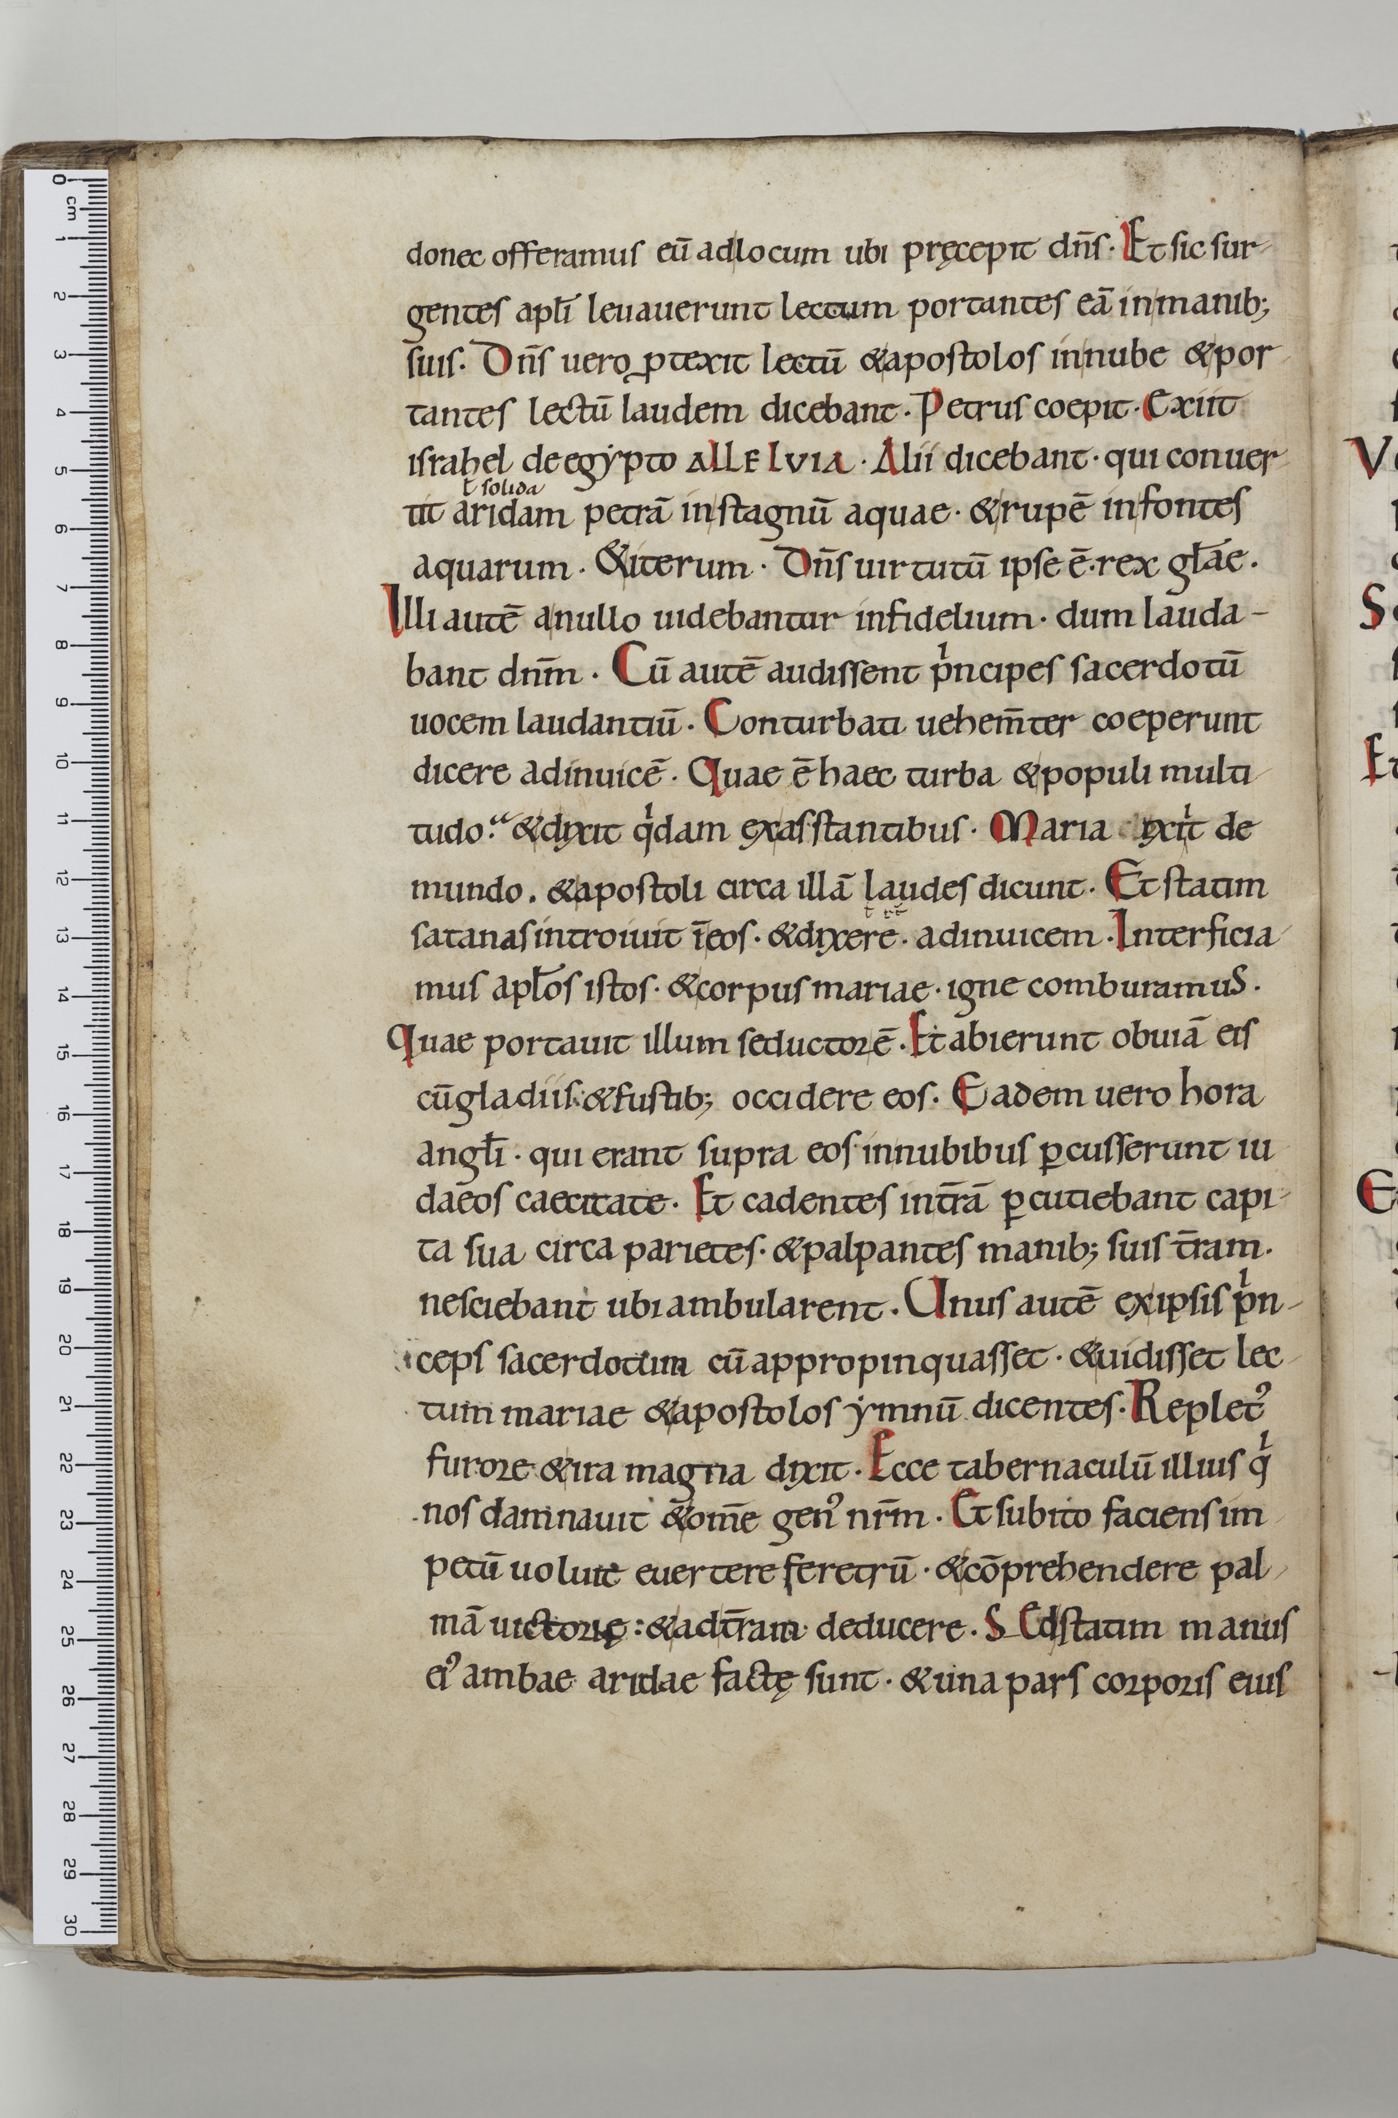 donec offeramus eū adlocum ubi pręcepit dn̄s· Et sic sur-
gentes apl̄i leuauerunt lectum portantes eā inmanib;
suis· Dn̄s uero ꝓtexit lectū &apostolos innube &por-
tantes lectū laudem dicebant· Petrus coepit· Exiit
israhel deegẏpto ALLELVIA· Alii dicebant· qui conuer-
ł solida
tit aridam petrā instagnū aquae· &rupē infontes
aquarum· &iterum· Dn̄s uirtutū ipse ē· rex gl̄ae·
Illi autē anullo uidebantur infidelium· dum lauda-
bant dn̄m· Cū autē audissent pͥncipes sacerdotū
uocem laudantiū· Conturbati uehem̄ter coeperunt
dicere adinuicē· Quae ē haec turba &populi multi-
tudo· &dixit qͥdam exasstantibus· Maria exiͥt de
mundo. &apostoli circa illā laudes dicunt· Et statim
satanas introiuit īeos· &dixere· adinuicem· Interficia-
mus apl̄os istos· &corpus mariae· igne comburamuS·
Quae portauit illum seductorē· Et abierunt obuiā eis
cūgladiis· &fustib; occidere eos· Eadem uero hora
angl̄i· qui erant supra eos innubibus ꝑcusserunt iu
daeos caecitate· Et cadentes int̄rā ꝑcutiebant capi-
ta sua circa parietes· &palpantes manib; suis t̄ram·
nesciebant ubi ambularent· Unus autē exipsis pͥn-
ceps sacerdotum cū appropinquasset· &uidisset lec-
tum mariae &apostolos ẏmnū dicentes· Replet᾽
furore &ira magna dixit· Ecce tabernaculū illius qͥ
nos damnauit &om̄e gen᾽ nr̄m· Et subito faciens im-
petū uoluit euertere feretrū· &cōprehendere pal-
mā uictorię: &adt̄ram deducere· SEd statim manus
ei᾽ ambae aridae factę sunt· &una pars corporis eius